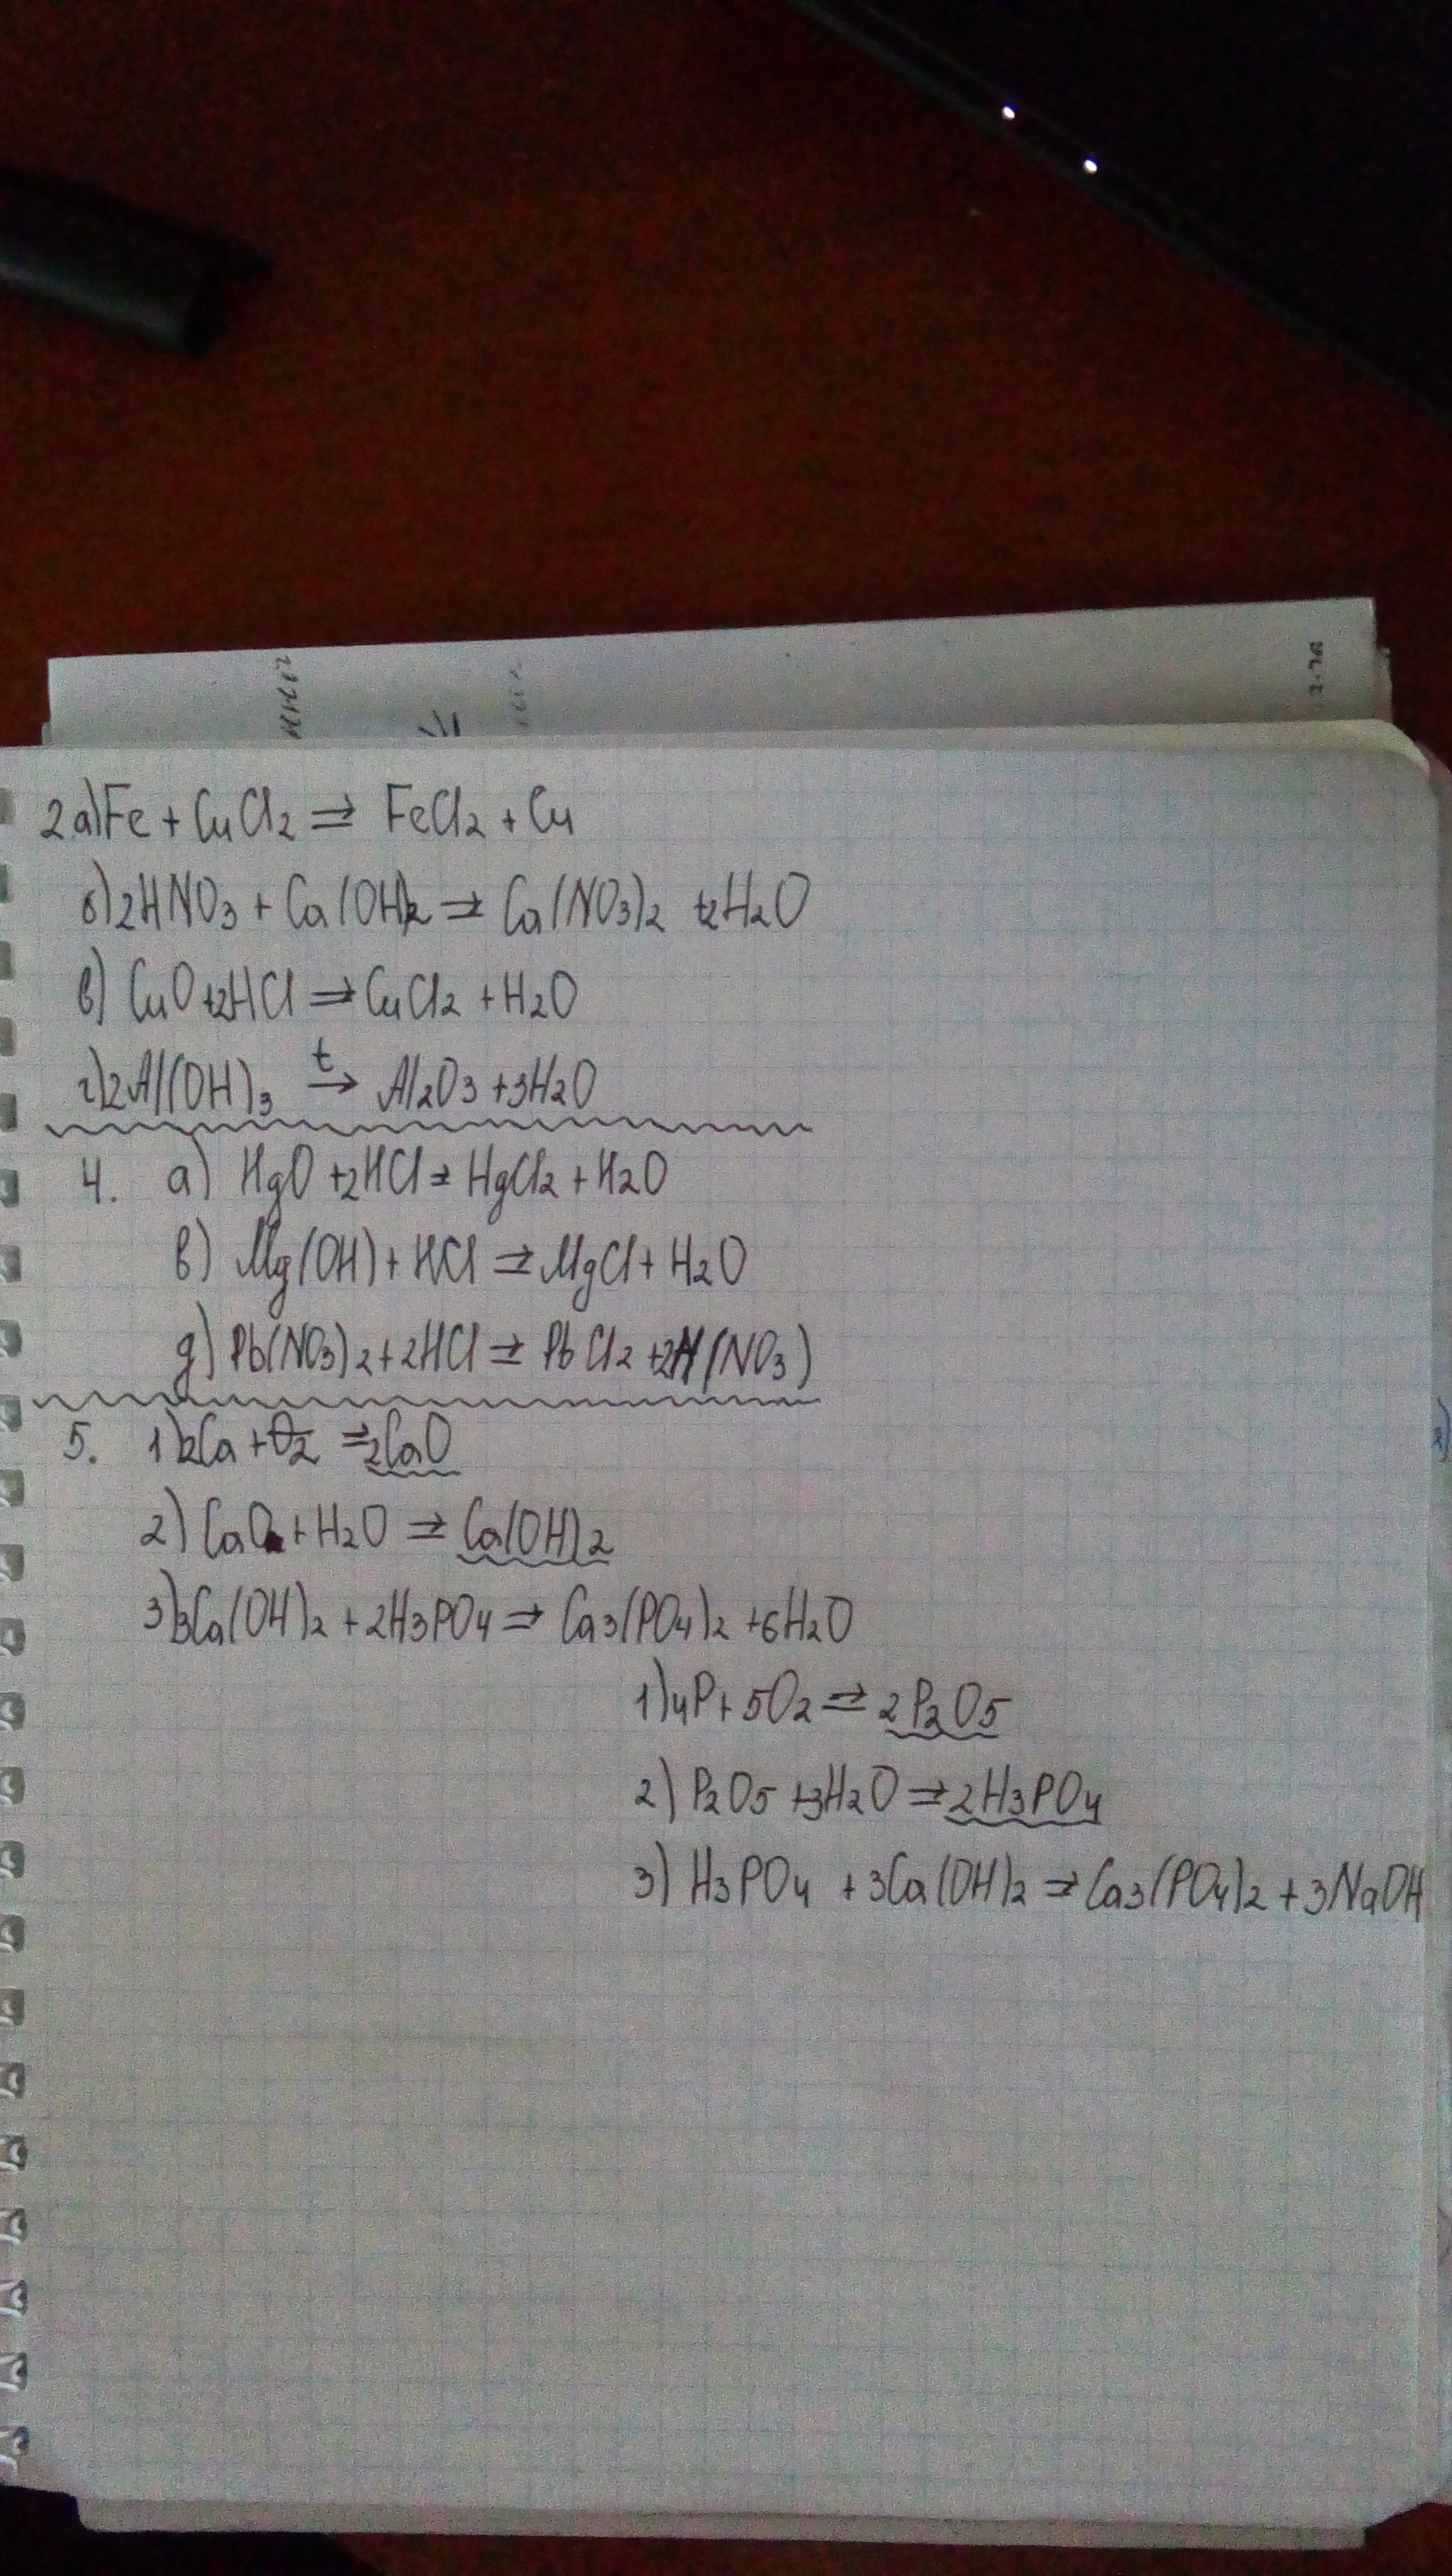 2 а) Fe + CuCl2 ⇒ FeCl2 + Cu
б) 2HNO3 + Ca(OH)2 ⇒ Ca(NO3)2 + 2H2O
в) CuO + 2HCl ⇒ CuCl2 + H2O
г) 2Al(OH)3 t→ Al2O3 + 3H2O
4. а) HgO + 2HCl ⇒ HgCl2 + H2O
в) Mg(OH) + HCl ⇒ MgCl + H2O
д) Pb(NO3)2 + 2HCl ⇒ PbCl2 + 2H(NO3)
5. 1) 2Ca + O2 ⇒ 2CaO
2) CaO + H2O ⇒ Ca(OH)2
3) 3Ca(OH)2 + 2H3PO4 ⇒ Ca3(PO4)2 + 6H2O
1) 4P + 5O2 ⇒ 2P2O5
2) P2O5 + 3H2O ⇒ 2H3PO4
3) H3PO4 + 3Ca(OH)2 ⇒ Ca3(PO4)2 + 3NaOH